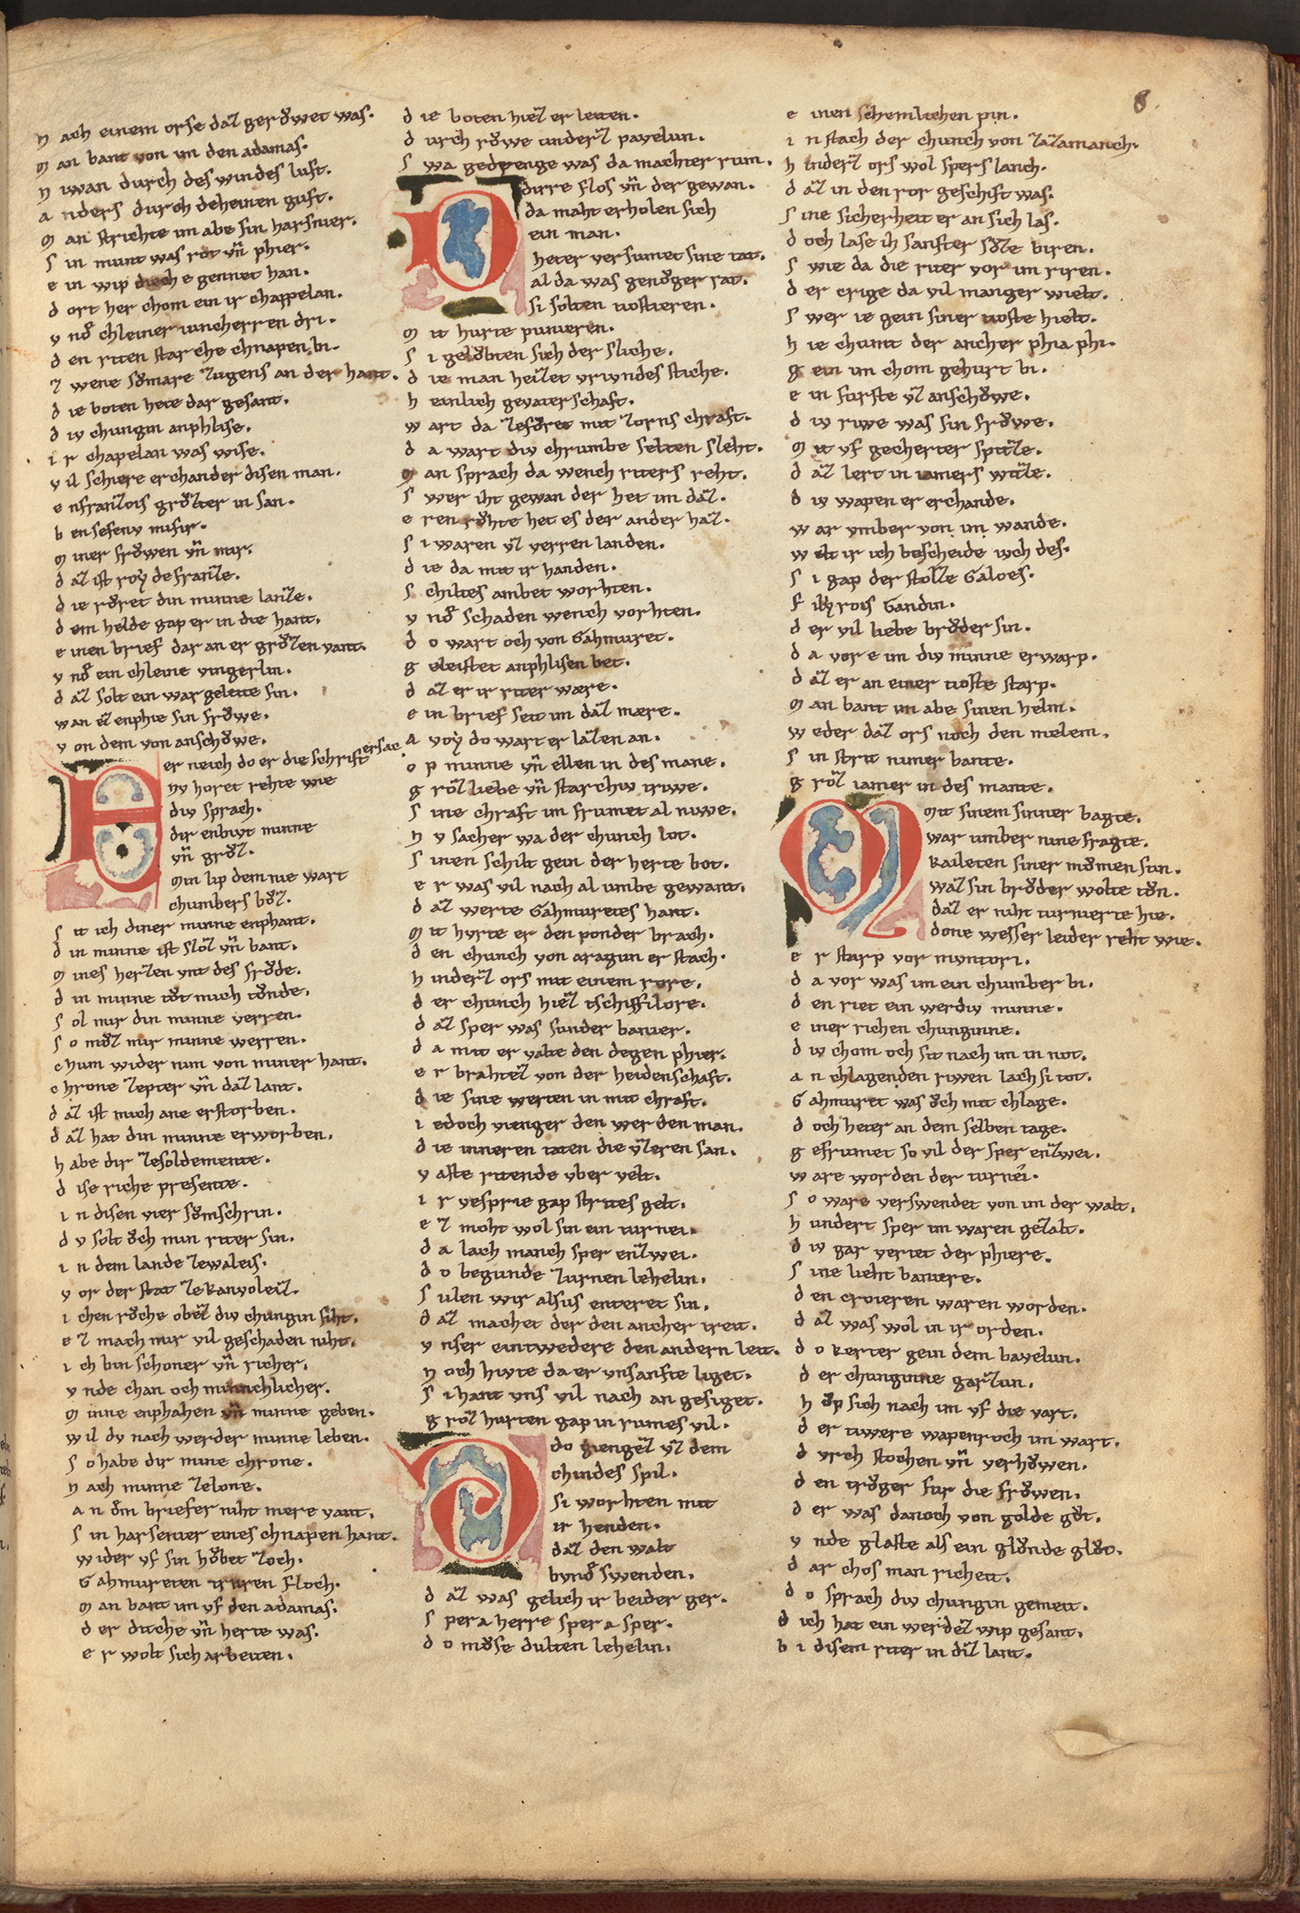 8.
n ach einem orse daz geroͮwet was.
m an bant von im den adamas.
n iwan durch des windes luft.
a nders durch deheinen guft.
m an strichte im abe sin harsnier.
s in munt was rot vn̄ phier.
e in wip diech e gennet han.
d ort her chom ein ir chappelan.
v nd̄ chleiner iuncherren dri.
d en riten starche chnapen bi.
z wene soͮmare zugens an der hant.
d ie boten hete dar gesant.
d iv chungin anphlise.
i r chapelan was wise.
v il schiere erchander disen man.
e nfranzois groͮzter in san.
b ensefenv missir.
m iner froͮwen vn̄ mir.
d az ist roẏ de franze.
d ie roͮret din minne lanze.
d em helde gap er in die hant.
e inen brief dar an er groͮzen vant.
v nd̄ ein chleine vingerlin.
d az solt ein wargeleite sin.
wan ez enphie sin froͮwe.
v on dem von anschoͮwe.
E r neich do er die schrift ersac
nv horet rehte wie
div sprach.
dir enbivt minne
vn̄ groͮz.
min lip dem nie wart
chumbers boͮz.
s it ich diner minne enphant.
d in minne ist sloz vn̄ bant.
m ines herzen vnt des froͮde.
d in minne toͮt mich toͮnde.
s ol mir din minne verren.
s o moͮz mir minne werren.
chum wider nim von miner hant.
chrone zepter vn̄ daz lant.
d az ist mich ane erstorben.
d az hat din minne erworben.
h abe dir zesoldemente.
d ise riche presente.
i n disen vier soͮmschrin.
d v solt oͮch min riter sin.
i n dem lande zewaleis.
v or der stat zekanvoleiz.
i chen roͮche obez div chungin siht.
e z mach mir vil geschaden niht.
i ch bin schoner vn̄ richer.
v nde chan och minnechlicher.
m inne enphahen vn̄ minne geben.
wil dv nach werder minne leben.
s o habe dir mine chrone.
n ach minne zelone.
a n dͦm briefer niht mere vant.
s in harsenier eines chnapen hant.
wider vf sin hoͮbet zoch.
Gahmureten truren floch.
m an bant im vf den adamas.
d er diche vn̄ herte was.
e r wolt sich arbeiten.
d ie boten hiez er leiten.
d urch roͮwe underz pavelun.
s wa gedrenge was da machter rum.
D irre flos vn̄ der gewan.
da maht erholen sich
ein man.
heter versumet sine tat.
al da was genoͮger rat.
si solten tiostieren.
m it hurte punieren.
s i geloͮbten sich der sliche.
d ie man heizet vriundes stiche.
h einlich gevaterschaft.
w art da zefoͮret mit zorns chraft.
d a wart div chrumbe selten sleht.
m an sprach da wench riters reht.
s wer iht gewan der het im daz.
e ren roͮhte het es der ander haz.
s i waren vz verren landen.
d ie da mit ir handen.
s chiltes ambet worhten.
v nd̄ schaden wench vorhten.
d o wart och von Gahmuret.
g eleistet anphlisen bet.
d az er ir riter wære.
e in brief seit im daz mære.
a voẏ do wart er lazen an.
o p minne vn̄ ellen in des mane.
g roz liebe vn̄ starchiv triwe.
s ine chraft im frumet al niwe.
n v sacher wa der chunch lot.
s inen schilt gein der herte bot.
e r was vil nach al umbe gewant.
d az werte Gahmuretes hant.
m it hvrte er den ponder brach.
d en chunch von aragun er stach.
h inderz ors mit einem rore.
d er chunch hiez tschiffilore.
d az sper was sunder banier.
d a mit er valte den degen phier.
e r brahtez von der heidenschaft.
d ie sine werten in mit chraft.
i edoch vienger den werden man.
d ie inneren taten die vzeren san.
v aste ritende vber velt.
i r vesprie gap strites gelt.
e z moht wol sin ein turnei.
d a lach manch sper enzwei.
d o begunde zurnen lehelin.
s ulen wir alsus enteret sin.
d az machet der den ancher treit.
v nser eintwedere den andern leit.
n och hivte da er vnsanfte liget.
s i hant vns vil nach an gesiget.
g roz hurten gap in rumes vil.
D do giengez vz dem
chindes spil.
si worhten mit
ir henden.
daz den walt
bvnd̄ swenden.
d az was gelich ir beider ger.
s per a herre sper a sper.
d o moͮse dulten lehelin.
e inen schemlichen pin.
i n stach der chunch von zazamanch.
h inderz ors wol spers lanch.
d az in den ror geschift was.
s ine sicherheit er an sich las.
d och lase ih sanfter soͮze biren.
s wie da die riter vor im riren.
d er crige da vil manger wielt.
s wer ie gein siner tioste hielt.
h ie chumt der ancher phia phi.
g ein im chom gehurt bi.
e in furste vz anschoͮwe.
d iv riwe was sin froͮwe.
m it vf gecherter spitze.
d az lert in iamers witze.
d iv wapen er erchande.
w ar vmber von im wande.
w elt ir ich bescheide iuch des.
s i gap der stolze Galoes.
f ilẏ rois Gandin.
d er vil liebe broͮder sin.
d a vor e im div minne erwarp.
d az er an einer tioste starp.
m an bant im abe sinen helm.
w eder daz ors noch den melem.
s in strit nimer bante.
g roz iamer in des mante.
M it sinem sinner bagte.
war umber nine fragte.
kaileten siner moͮmen sun.
waz sin broͮder wolte toͮn.
daz er niht turnierte hie.
done wesser leider reht wie.
e r starp vor mvntori.
d a vor was im ein chumber bi.
d en riet ein werdiv minne.
e iner richen chunginne.
d iv chom och sit nach im in not.
a n chlagenden riwen lach si tot.
G ahmuret was oͮch mit chlage.
d och heter an dem selben tage.
g efrumet so vil der sper enzwei.
w are worden der turnei.
s o ware verswendet von im der walt.
h undert sper im waren gezalt.
d iv gar vertet der phiere.
s ine lieht baniere.
d en croieren waren worden.
d az was wol in ir orden.
d o kerter gein dem bavelun.
d er chunginne garzun.
h oͮp sich nach im vf die vart.
d er tiwere wapenroch im wart.
d vrch stochen vn̄ verhoͮwen.
d en troͮger fur die froͮwen.
d er was danoch von golde goͮt.
v nde glaste als ein gloͮnde gloͮt.
d ar chos man richeit.
d o sprach div chungin gemeit.
d ich hat ein werdez wip gesant.
b i disem riter in diz lant.